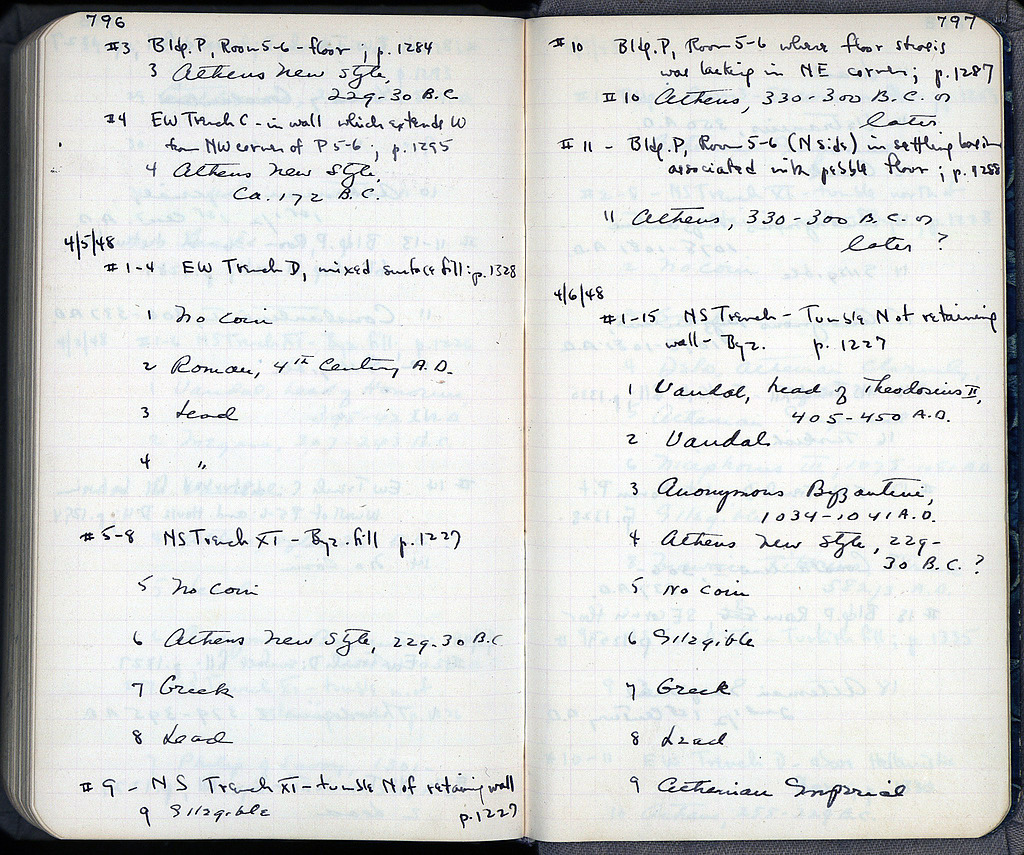 796
#3 Bldg. P, Room 5-6 - floor; p. 1284
3 Athens New Style,
229-30 B.C.
#4 EW Trench C - in wall which extends W
from NW corner of P 5-6; p. 1295
4 Athens New Style,
Ca. 172 B.C.
4/5/48
#1-4 EW Trench D, mixed surface fill: p. 1328
1 No coin
2 Roman, 4TH Century A.D.
3 Lead
4 "
#5-8 NS Trench XI - Byz. fill p. 1227
5 No Coin
6 Athens New Style, 229-30 B.C.
7 Greek
8 Lead
#9 - NS Trench XI - tumble N of retaining wall
9 Illegible p. 1227
797
#10 Bldg. P, Room 5-6 where floor strosis
was lacking in NE corner; p. 1287
#10 Athens, 330-300 B.C. or
later
#11 - Bldg. P, Room 5-6 (N side) in settling basin
associated with pebble floor; p. 1288
11 Athens, 330-300 B.C. or
later ?
4/6/48
#1-15 NS Trench - Tumble N of retaining
wall - Byz. p. 1227
1 Vandal, head of Theodosius II,
405-450 A.D.
2 Vandal
3 Anonymous Byzantine,
1034-1041 A.D.
4 Athens New Style, 229-
30 B.C. ?
5 No Coin
6 Illegible
7 Greek
8 Lead
9 Athenian Imperial